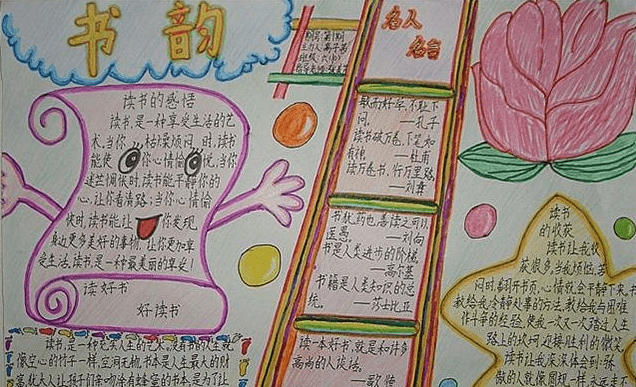 书韵
名人
名言
读书的感悟
读书,是一种享受生活的艺
术,当你枯燥烦闷,时,读书
能使你心情愉悦,当你
迷茫惆怅时,读书能平静你的
心,让你看清路,当你心情愉
快时,读书能让你发现
身边更多美好的事物,让你更加享
受生活,读书,是一种最美丽的享受!
读好书
好读书
敏而好学,不耻下
问。 —孔子
读书破万卷,下笔如
有神 —杜甫
读万卷书,行万里路
—刘彝
书犹药也,善读之可以
医愚。 —刘向
书是人类进步的阶梯。
—高尔基
书籍是人类知识的总
统。 —莎士比亚
读一本好书,就是和许多
高尚的人谈话。
—歌德
读书
的收获
读书让我收
获很多,当我烦恼,苦
闷时,翻开书页,心情就会平静下来,书
教给我冷静处事的方法,教给我与困难
作斗争的经验,使我一次又一次踏过人生
路上的坎坷,迎接胜利的微笑
读书让我深深体会到:
读书,是一种充实人生的艺术,没有书的人生就
像空心的竹子一样,空间无物,书本是人生最大的财